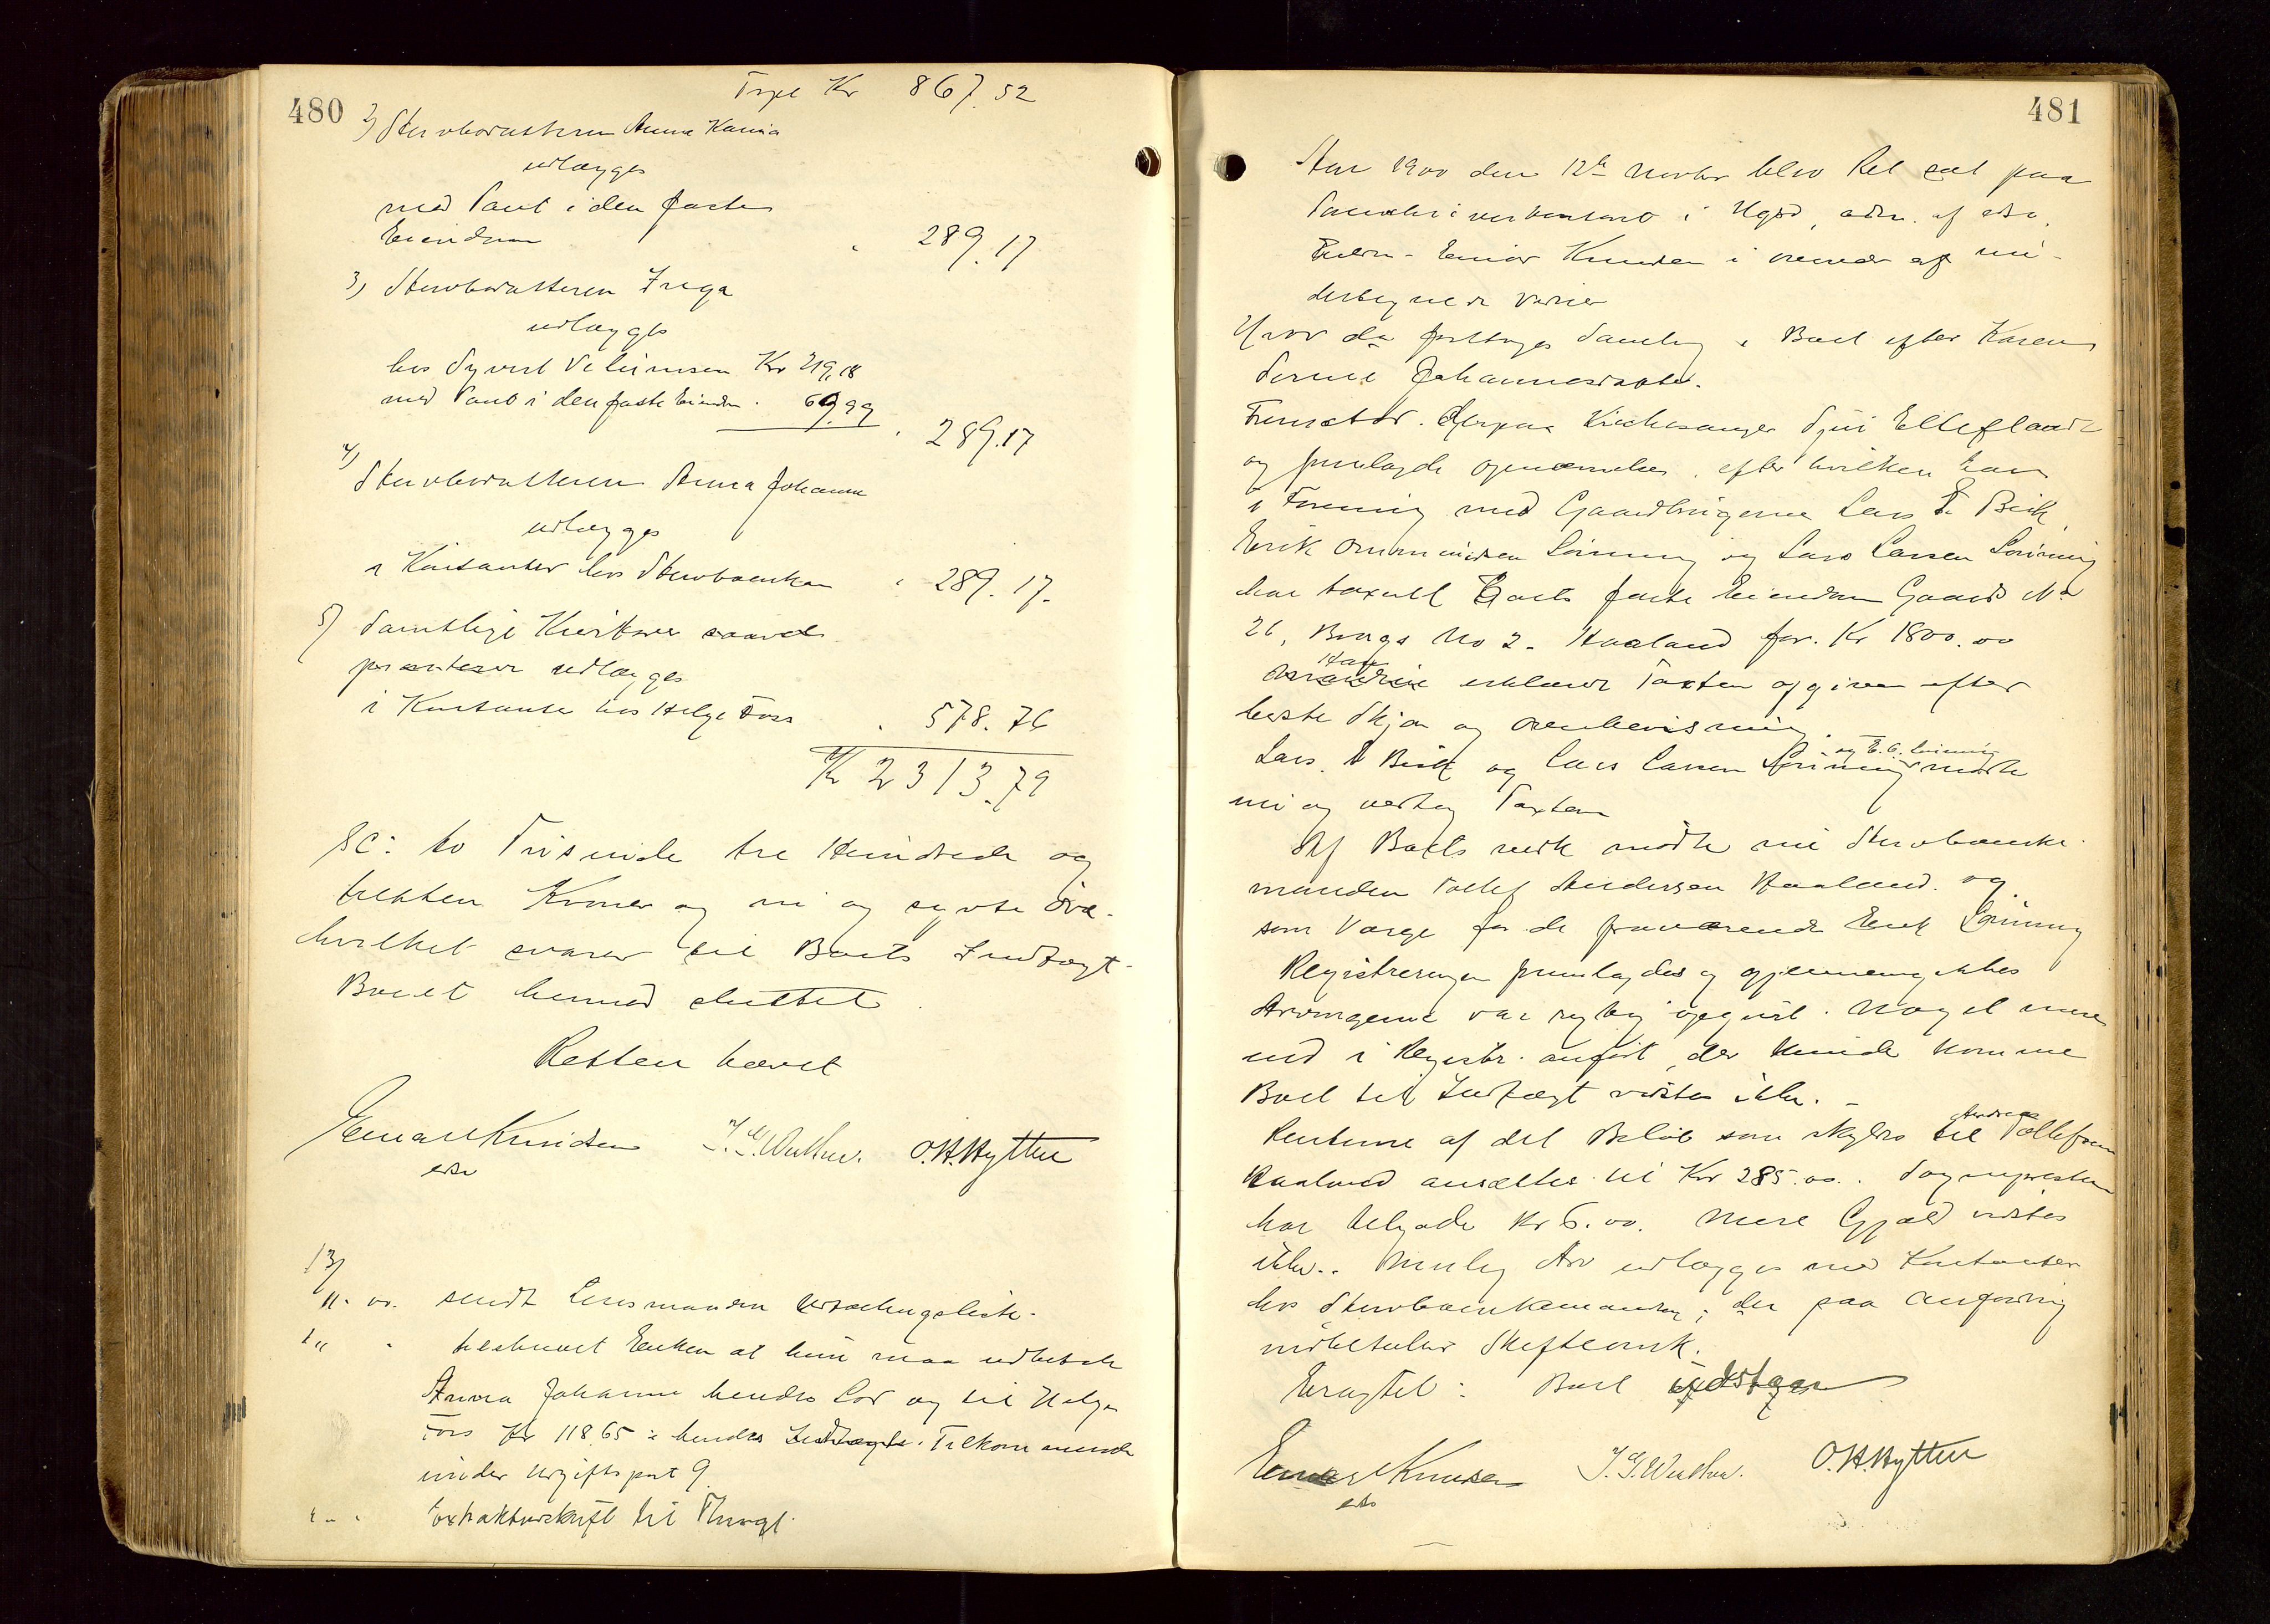 480
Trspt Kr 867.52
2) Stervbodatteren Anna Karina
udlægges
med Pant i den faste
Eiendom " 289.17
3) Stervbodatteren Inga
udlægges
hos Syvert Kr 219,18
med Pant i den faste Eiendom " 69.99
" 289.17
4) Stervbodatteren Anna Johanne
udlægges
i Kontanter hos Stervboenken " 289.17.
5) Samtlige Kreditorer saavel
udlægges
i Kontante hos Helge Foss " 578.76
Kr 2313.79
sc: to Tusinde tre Hundrede og
tretten Kroner og ni og sytti Øre
hvilket svarer til Boets Indtægt.
Boet hermed sluttet.
Retten hævet
Einar Knudsen J. G. Wathne. O. H. Hytten
eda
13/
11. 00. sendt Lensmanden Utlodningsliste.
" " " tilskrevet Enken at hun maa udbetale
Anna Johanne hendes Lod og til Helge
Foss Kr 118.65 = hendes Tilkommende
under Udgiftspost 9
" " " Extraktudskrift til
481
Aar 1900 den 12te Novbr blev Ret sat paa
Sorenskriverkontoret i Hgsd, adm. af eda.
Einar Knudsen i Overvær af un-
dertegnede Vidner
Hvor da foretoges Samling i Boet efter Karen
Serine Johannesdatter.
Fremstod Kirkesanger Ellefland
og fremlagde Opnævnelse, efter hvilken han
i Forening med Gaardbrugerne Lars T. Beck
Erik Ommundsen Lønning og Lars Larsen Lønning
har taxeret Boets faste Eiendom Gaards No
26, Brugs No 2. Haaland for Kr 1800.00
Han erklærede Taxten afgiven efter
bedste Skjøn og Overbevisning.
Lars T Beck og Lars Larsen Lønning og E. O. Lønning mødte
nu og vedtog Taxten
Af Boets mødte nu Stervboenke-
manden Tollef Andersen Haaland. og
som Værge for de fraværende Erik Lønning
Registreringen fremlagdes og gjennemgikkes
Arvingerne var rigtig opgivet. Noget mere
end i Registr. anført, der kunde komme
Boet til Indtægt vidstes ikke.
Renterne af det Beløb som skyldes til Andreas Tollefsen
Haaland ansættes til Kr 285.00. Sognepresten
har tilgode Kr 6.00. Mere Gjæld vidstes
ikke. Mulig Arv udlægges med Kontanter
hos Stervboenkemanden, der paa Anfordring
indbetaler Skifteomk.
Eragtet: Boet udstaar
Einar Knudsen J. G. Wathne. O. H. Hytten
eda